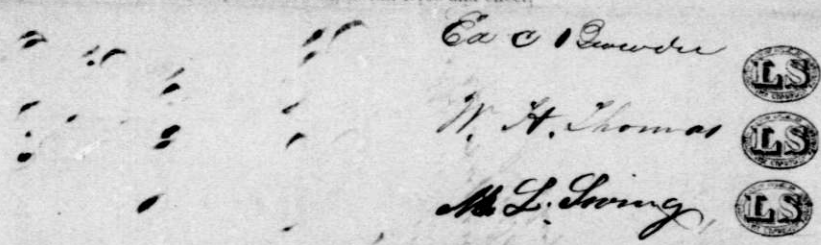 Ed C Browder LS
W. H. Thomas LS
M. L. Ewing LS